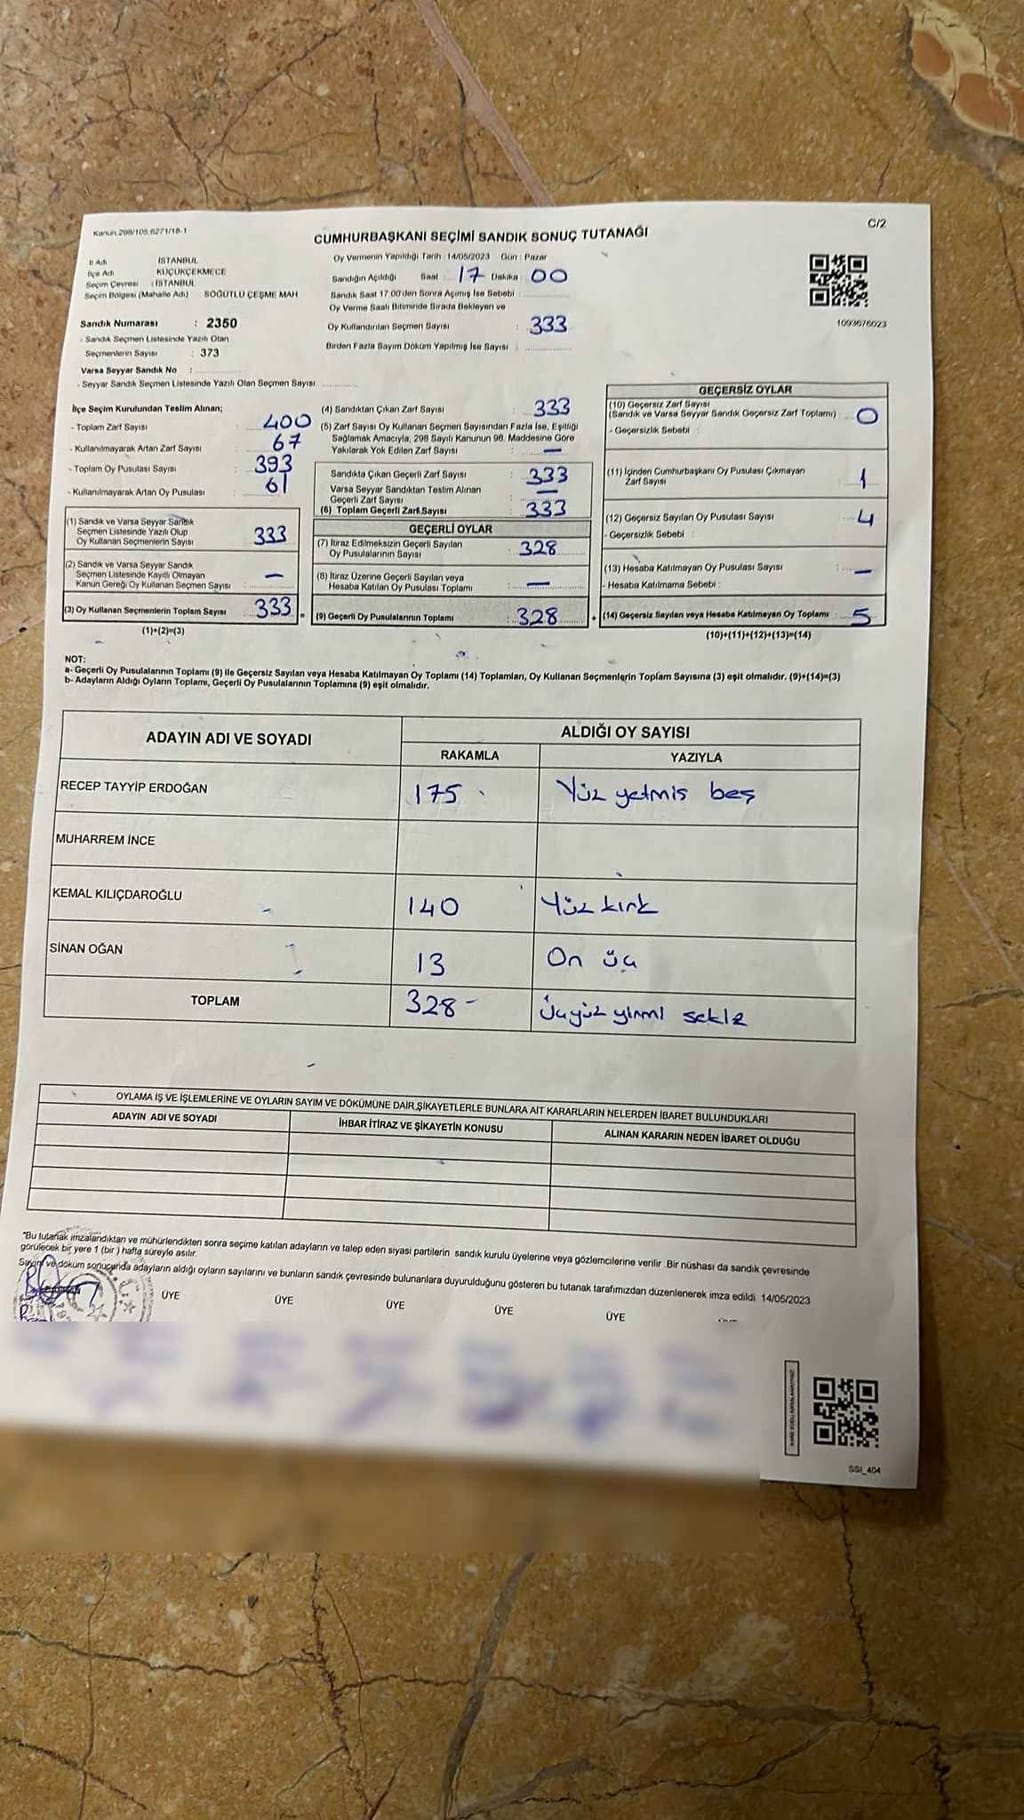 Kanun 298/105,6271/18-1
C/2
CUMHURBAŞKANI SEÇİMİ SANDIK SONUÇ TUTANAĞI
İl Adı : İSTANBUL
İlçe Adı : KÜÇÜKÇEKMECE
Seçim Çevresi : İSTANBUL
Seçim Bölgesi (Mahalle Adı) : SÖĞÜTLÜ ÇEŞME MAH
Sandık Numarası : 2350
- Sandık Seçmen Listesinde Yazılı Olan
Seçmenlerin Sayısı : 373
Varsa Seyyar Sandık No :
- Seyyar Sandık Seçmen Listesinde Yazılı Olan Seçmen Sayısı
Oy Vermenin Yapıldığı Tarih : 14/05/2023 Gün : Pazar
Sandığın Açıldığı Saat : 17 Dakika : 00
Sandık Saat 17:00'den Sonra Açılmış İse Sebebi :
Oy Verme Saati Bitiminde Sırada Bekleyen ve
Oy Kullandırılan Seçmen Sayısı : 333
Birden Fazla Sayım Döküm Yapılmış İse Sayısı :
1093676023
İlçe Seçim Kurulundan Teslim Alınan;
- Toplam Zarf Sayısı : 400
- Kullanılmayarak Artan Zarf Sayısı : 67
- Toplam Oy Pusulası Sayısı : 393
- Kullanılmayarak Artan Oy Pusulası : 61
(1) Sandık ve Varsa Seyyar Sandık
Seçmen Listesinde Yazılı Olup
Oy Kullanan Seçmenlerin Sayısı : 333
(2) Sandık ve Varsa Seyyar Sandık
Seçmen Listesinde Kayıtlı Olmayan
Kanun Gereği Oy Kullanan Seçmen Sayısı : —
(3) Oy Kullanan Seçmenlerin Toplam Sayısı : 333
(1)+(2)=(3)
(4) Sandıktan Çıkan Zarf Sayısı : 333
(5) Zarf Sayısı Oy Kullanan Seçmen Sayısından Fazla İse, Eşitliği
Sağlamak Amacıyla, 298 Sayılı Kanunun 98. Maddesine Göre
Yakılarak Yok Edilen Zarf Sayısı : —
Sandıkta Çıkan Geçerli Zarf Sayısı : 333
Varsa Seyyar Sandıktan Teslim Alınan
Geçerli Zarf Sayısı : —
(6) Toplam Geçerli Zarf Sayısı : 333
GEÇERLİ OYLAR
(7) İtiraz Edilmeksizin Geçerli Sayılan
Oy Pusulalarının Sayısı : 328
(8) İtiraz Üzerine Geçerli Sayılan veya
Hesaba Katılan Oy Pusulası Toplamı : —
(9) Geçerli Oy Pusulalarının Toplamı : 328
GEÇERSİZ OYLAR
(10) Geçersiz Zarf Sayısı
(Sandık ve Varsa Seyyar Sandık Geçersiz Zarf Toplamı) : 0
- Geçersizlik Sebebi :
(11) İçinden Cumhurbaşkanı Oy Pusulası Çıkmayan
Zarf Sayısı : 1
(12) Geçersiz Sayılan Oy Pusulası Sayısı : 4
- Geçersizlik Sebebi :
(13) Hesaba Katılmayan Oy Pusulası Sayısı : —
- Hesaba Katılmama Sebebi :
(14) Geçersiz Sayılan veya Hesaba Katılmayan Oy Toplamı : 5
(10)+(11)+(12)+(13)=(14)
NOT:
a- Geçerli Oy Pusulalarının Toplamı (9) ile Geçersiz Sayılan veya Hesaba Katılmayan Oy Toplamı (14) Toplamları, Oy Kullanan Seçmenlerin Toplam Sayısına (3) eşit olmalıdır. (9)+(14)=(3)
b- Adayların Aldığı Oyların Toplamı, Geçerli Oy Pusulalarının Toplamına (9) eşit olmalıdır.
ADAYIN ADI VE SOYADI
ALDIĞI OY SAYISI
RAKAMLA YAZIYLA
RECEP TAYYİP ERDOĞAN 175 Yüz yetmis beş
MUHARREM İNCE
KEMAL KILIÇDAROĞLU 140 Yüz kırk
SİNAN OĞAN 13 On üç
TOPLAM 328 üçyüz yirmi sekiz
OYLAMA İŞ VE İŞLEMLERİNE VE OYLARIN SAYIM VE DÖKÜMÜNE DAİR ŞİKAYETLERLE BUNLARA AİT KARARLARIN NELERDEN İBARET BULUNDUKLARI
ADAYIN ADI VE SOYADI
İHBAR İTİRAZ VE ŞİKAYETİN KONUSU
ALINAN KARARIN NEDEN İBARET OLDUĞU
"Bu tutanak imzalandıktan ve mühürlendikten sonra seçime katılan adayların ve talep eden siyasi partilerin sandık kurulu üyelerine veya gözlemcilerine verilir. Bir nüshası da sandık çevresinde
görülecek bir yere 1 (bir) hafta süreyle asılır.
Sayım ve döküm sonucunda adayların aldığı oyların sayılarını ve bunların sandık çevresinde bulunanlara duyurulduğunu gösteren bu tutanak tarafımızdan düzenlenerek imza edildi. 14/05/2023
ÜYE ÜYE ÜYE ÜYE ÜYE
SSI_404